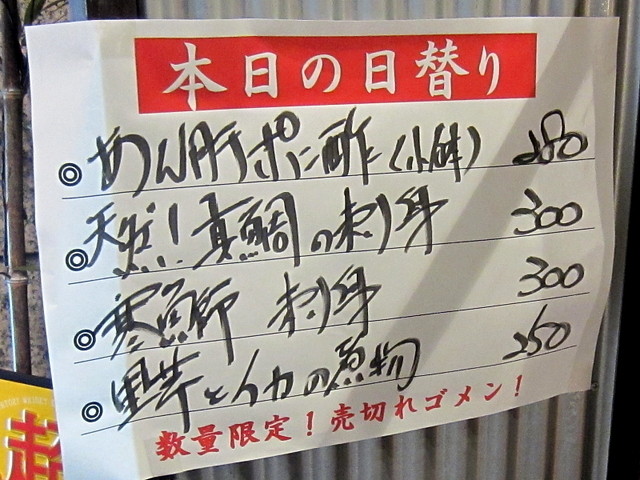 本日の日替り
◎あん肝ポン酢(小鉢) 280
◎天然!真鯛の刺身 300
◎寒鰤 刺身 300
◎里芋とイカの煮物 250
数量限定!売切れゴメン!